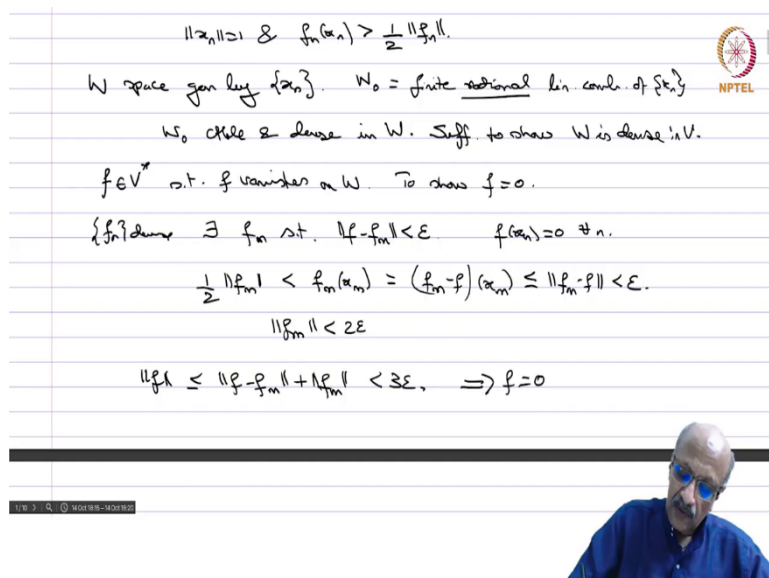 ||xₙ||=1 & fₙ(xₙ) > 1/2 ||fₙ||.
W space gen by {xₙ}. W₀ = finite rational lin. comb. of {xₙ}
NPTEL
W₀ ctble & dense in W. Suff. to show W is dense in V.
f ∈ V* s.t. f vanishes on W. To show f=0.
{fₙ} dense ∃ fₘ s.t. ||f-fₘ|| < ε. f(xₙ)=0 ∀ n.
1/2 ||fₘ|| < fₘ(xₘ) = (fₘ-f)(xₘ) ≤ ||fₘ-f|| < ε.
||fₘ|| < 2ε
||f|| ≤ ||f-fₘ|| + ||fₘ|| < 3ε. ⇒ f=0
1/10 14 Oct 18:15 - 14 Oct 18:20